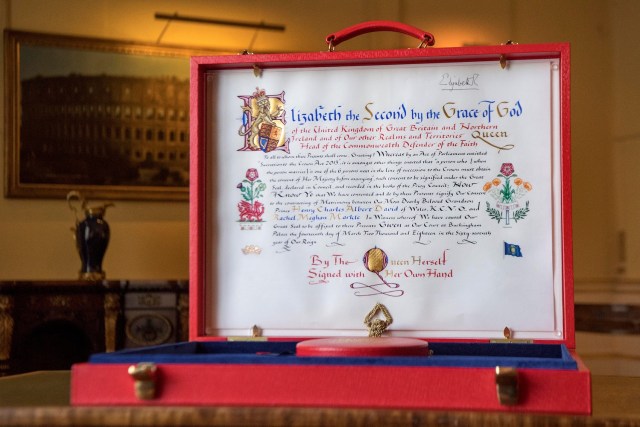 Elizabeth R
Elizabeth the Second by the Grace of God
of the United Kingdom of Great Britain and Northern
Ireland and of Our other Realms and Territories Queen
Head of the Commonwealth Defender of the Faith
To all to whom these Presents shall come Greeting! Whereas by an Act of Parliament entitled
Succession to the Crown Act 2013, it is amongst other things enacted that "a person who (when
the person marries) is one of the 6 persons next in the line of succession to the Crown must obtain
the consent of Her Majesty before marrying", such consent to be signified under the Great
Seal, declared in Council, and recorded in the books of the Privy Council: Now
Know Ye that We have consented and do by these Presents signify Our Consent
to the contracting of Matrimony between Our Most Dearly Beloved Grandson
Prince Henry Charles Albert David of Wales, K.C.V.O., and
Rachel Meghan Markle. In Witness whereof We have caused Our
Great Seal to be affixed to these Presents Given at Our Court at Buckingham
Palace the fourteenth day of March Two Thousand and Eighteen in the Sixty seventh
year of Our Reign
By The Queen Herself
Signed with Her Own Hand